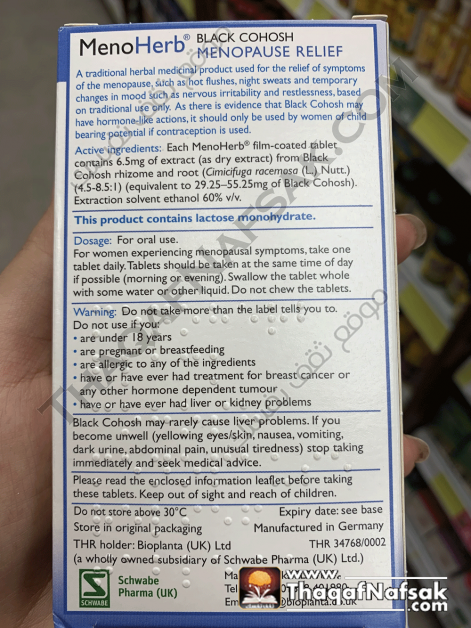 MenoHerb® BLACK COHOSH
MENOPAUSE RELIEF
A traditional herbal medicinal product used for the relief of symptoms
of the menopause, such as hot flushes, night sweats and temporary
changes in mood such as nervous irritability and restlessness, based
on traditional use only. As there is evidence that Black Cohosh may
have hormone-like actions, it should only be used by women of child
bearing potential if contraception is used.
Active ingredients: Each MenoHerb® film-coated tablet
contains 6.5mg of extract (as dry extract) from Black
Cohosh rhizome and root (Cimicifuga racemosa (L.) Nutt.)
(4.5-8.5:1) (equivalent to 29.25–55.25mg of Black Cohosh).
Extraction solvent ethanol 60% v/v.
This product contains lactose monohydrate.
Dosage: For oral use.
For women experiencing menopausal symptoms, take one
tablet daily. Tablets should be taken at the same time of day
if possible (morning or evening). Swallow the tablet whole
with some water or other liquid. Do not chew the tablets.
Warning: Do not take more than the label tells you to.
Do not use if you:
• are under 18 years
• are pregnant or breastfeeding
• are allergic to any of the ingredients
• have or have ever had treatment for breast cancer or
any other hormone dependent tumour
• have or have ever had liver or kidney problems
Black Cohosh may rarely cause liver problems. If you
become unwell (yellowing eyes/skin, nausea, vomiting,
dark urine, abdominal pain, unusual tiredness) stop taking
immediately and seek medical advice.
Please read the enclosed information leaflet before taking
these tablets. Keep out of sight and reach of children.
Do not store above 30°C Expiry date: see base
Store in original packaging Manufactured in Germany
THR holder: Bioplanta (UK) Ltd THR 34768/0002
(a wholly owned subsidiary of Schwabe Pharma (UK) Ltd.)
SCHWABE
Schwabe
Pharma (UK)
www.
ThaqafNafsak
.com
THAQAFNAFSAK.COM
موقع ثقف نفسك